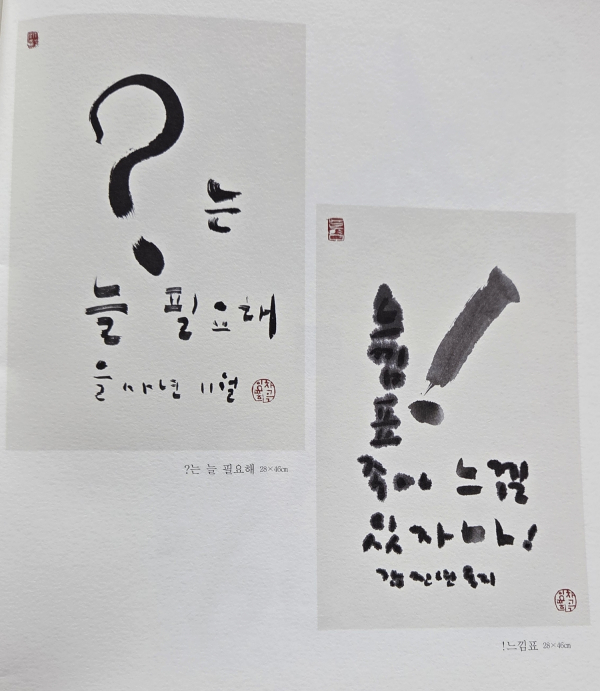 ?
는
늘 필요해
을사년 11월
?는 늘 필요해 28×46㎝
느낌표
!
느낌
갑진년 동지
!느낌표 28×46㎝